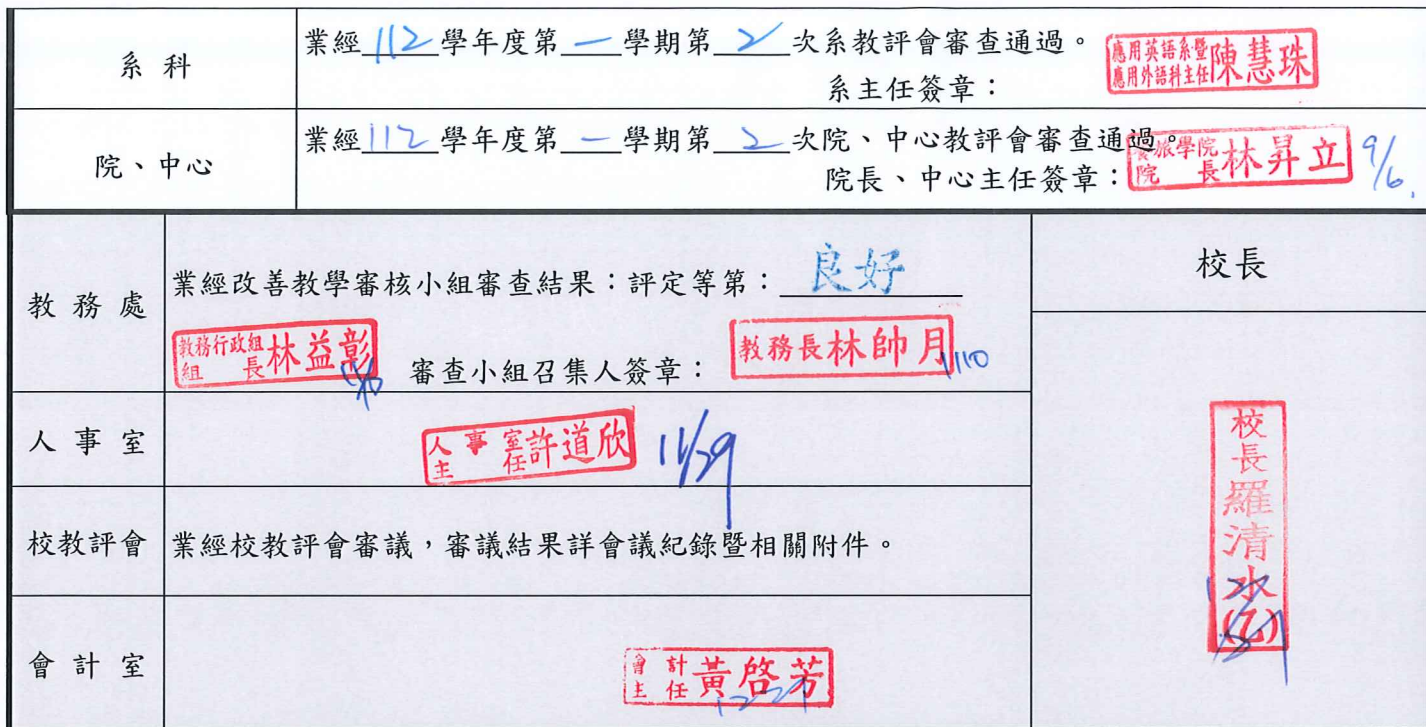 系科
業經 112 學年度第 一 學期第 2 次系教評會審查通過。
系主任簽章：
應用英語系暨應用外語科主任陳慧珠
院、中心
業經 112 學年度第 一 學期第 2 次院、中心教評會審查通過。
院長、中心主任簽章：
旅學院院長林昇立 9/6.
教務處
業經改善教學審核小組審查結果：評定等第： 良好
教務行政組組長林益彰
審查小組召集人簽章：
教務長林帥月 1110
人事室
人事室主任許道欣 11/29
校教評會
業經校教評會審議，審議結果詳會議紀錄暨相關附件。
會計室
會計主任黃啓芳
校長
校長羅清水(乙)